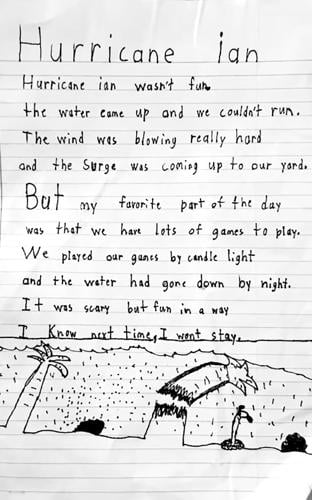 Hurricane ian
Hurricane ian wasn't fun.
the water came up and we couldn't run.
The wind was blowing really hard
and the surge was coming up to our yard.
But my favorite part of the day
was that we have lots of games to play.
We played our games by candle light
and the water had gone down by night.
It was scary but fun in a way
I Know next time, I wont stay.